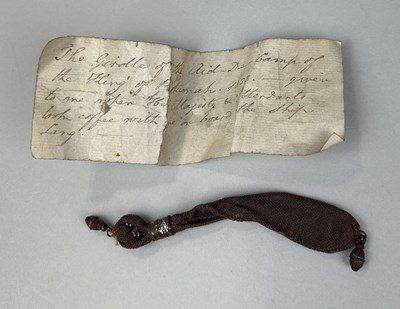 The Girdle of Aid-De Camp of
the King of — given
to me when his Majesty & Attendants
took coffee with on board the Ship